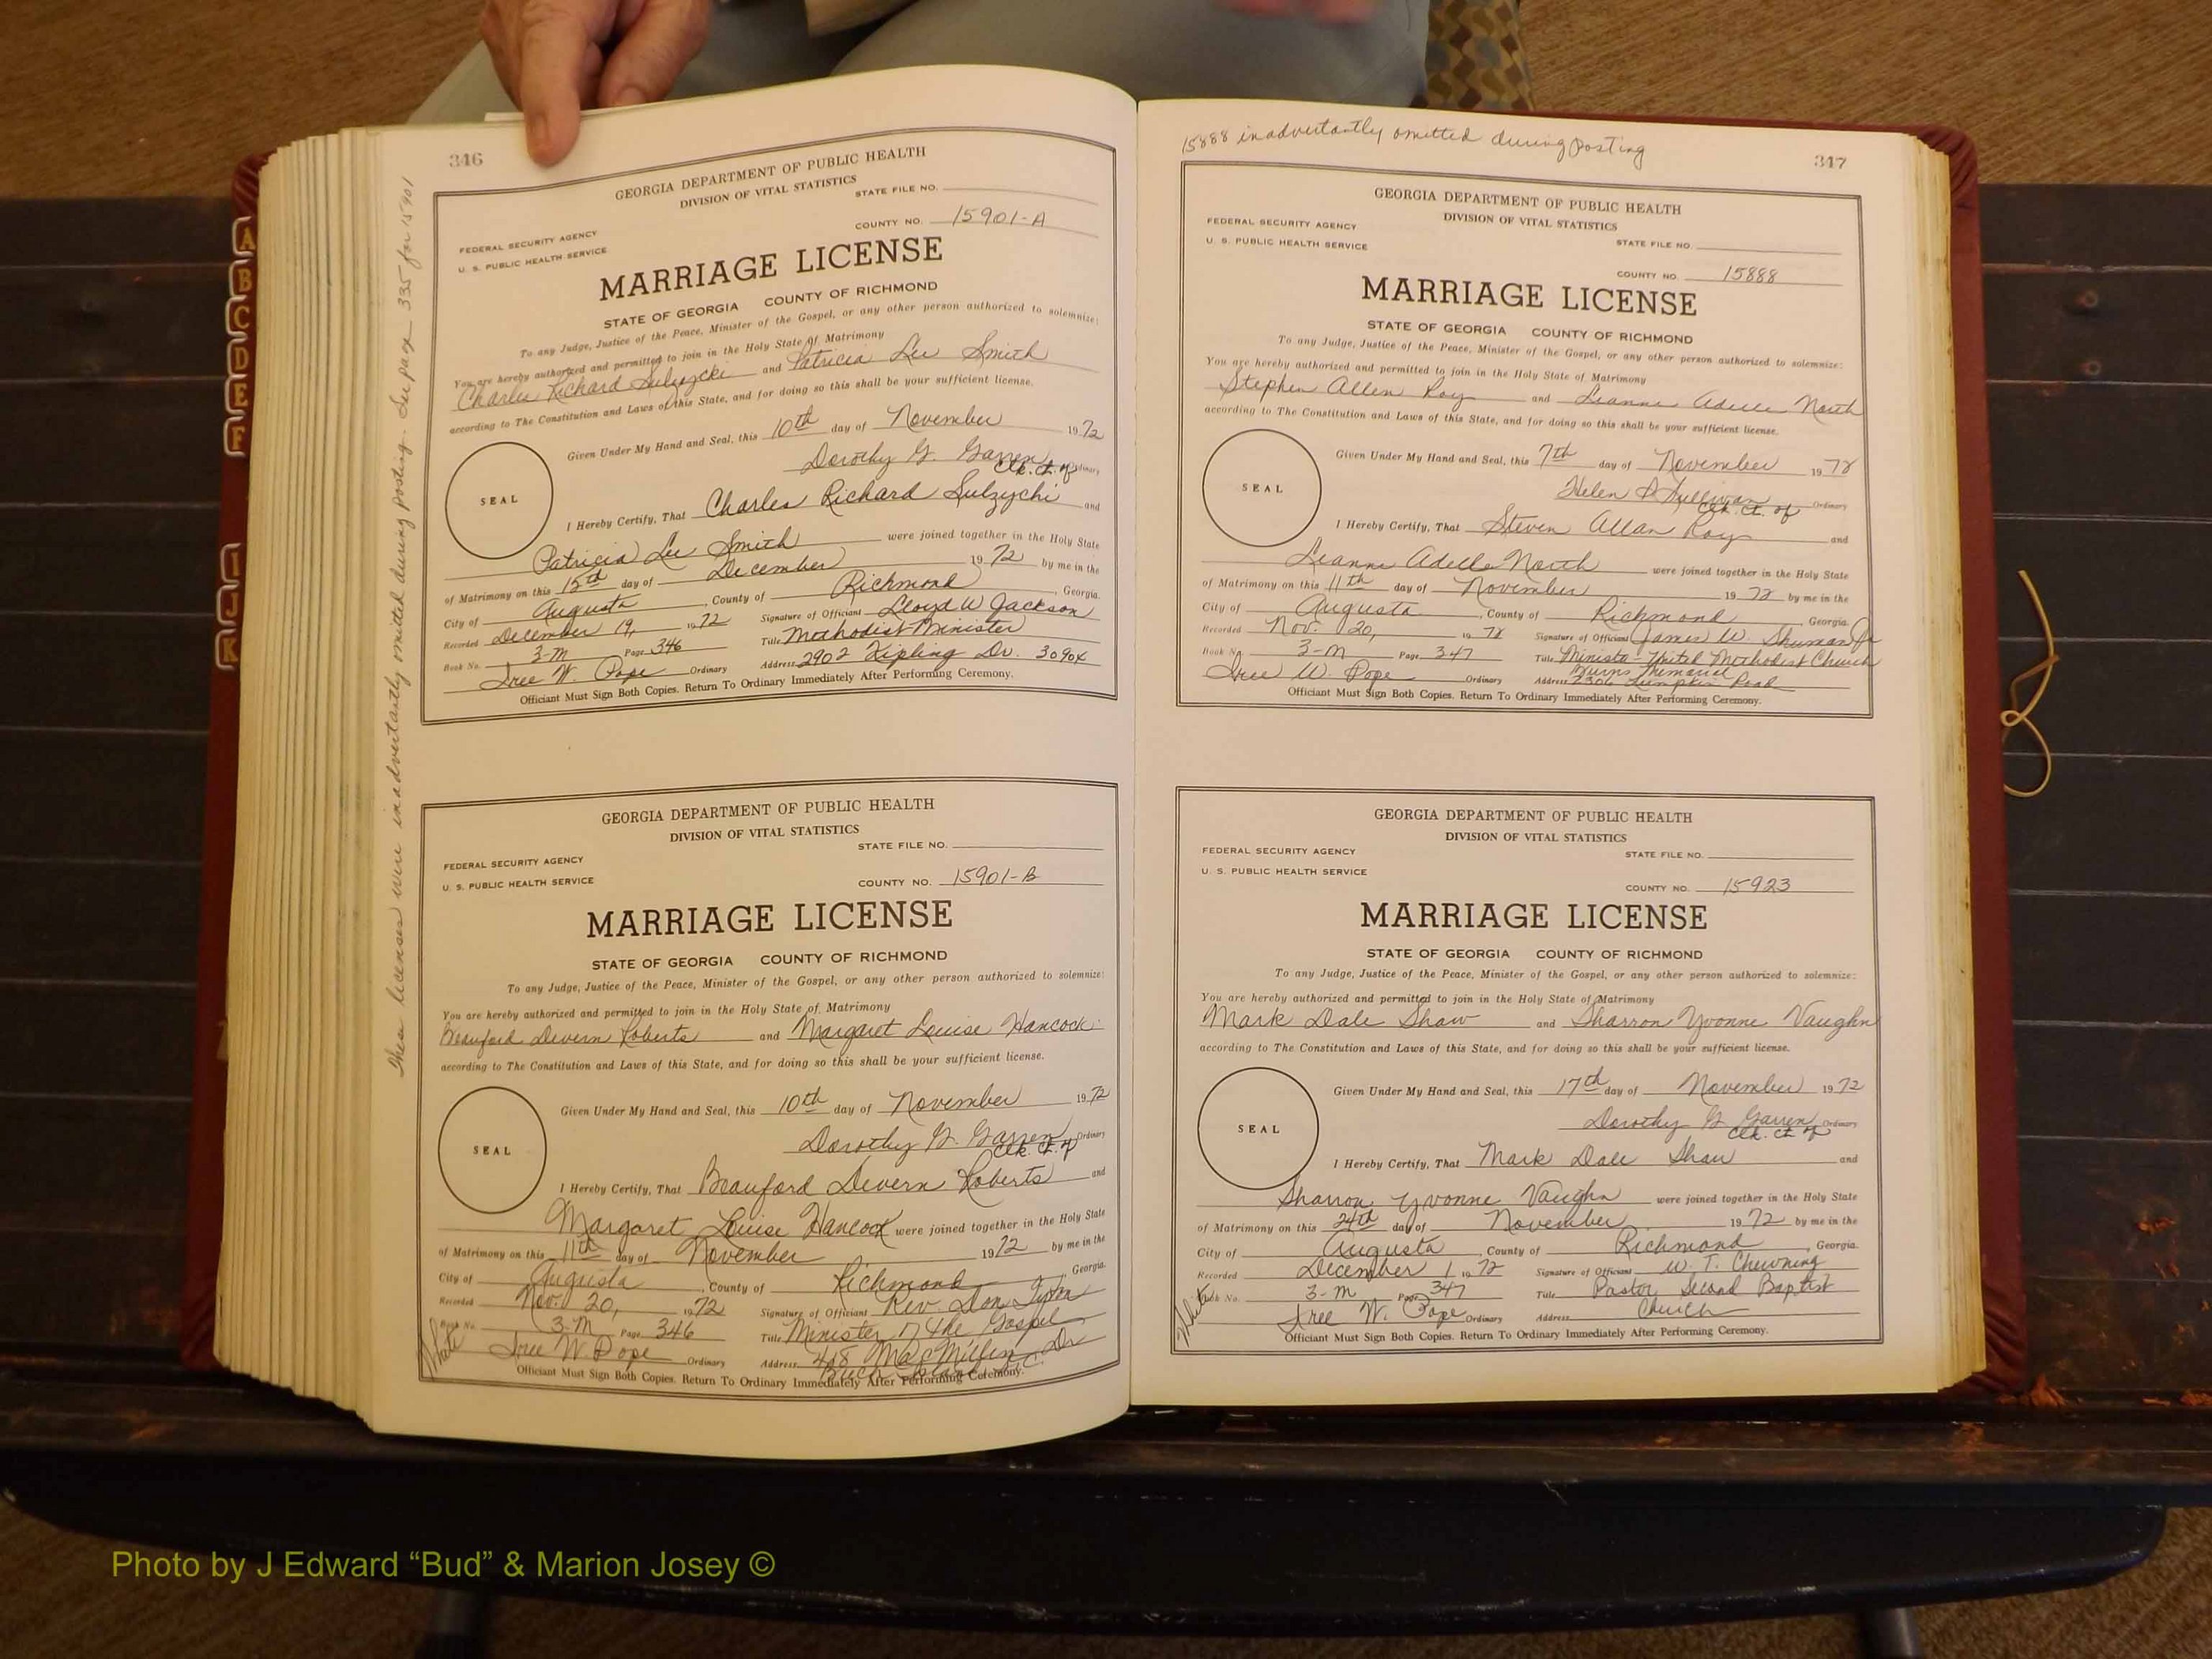 346
These licenses were inadvertantly omitted during posting. See page 335 for 15901
GEORGIA DEPARTMENT OF PUBLIC HEALTH
DIVISION OF VITAL STATISTICS
STATE FILE NO.
COUNTY NO. 15901-A
FEDERAL SECURITY AGENCY
U. S. PUBLIC HEALTH SERVICE
MARRIAGE LICENSE
STATE OF GEORGIA COUNTY OF RICHMOND
To any Judge, Justice of the Peace, Minister of the Gospel, or any other person authorized to solemnize:
You are hereby authorized and permitted to join in the Holy State of Matrimony
Charles Richard and Patricia Lee Smith
according to The Constitution and Laws of this State, and for doing so this shall be your sufficient license.
Given Under My Hand and Seal, this 10th day of November 1972
Dorothy G. Garren Clk. Ct. of Ordinary
SEAL
I Hereby Certify, That Charles Richard Sulzychi and
Patricia Lee Smith were joined together in the Holy State
of Matrimony on this 15th day of December 1972 by me in the
City of Augusta, County of Richmond, Georgia.
Recorded December 19, 1972 Signature of Officiant Lloyd W Jackson
Book No. 3-M Page 346 Title Methodist Minister
Iree W. Pope Ordinary Address 2902 Kipling Dr. 30904
Officiant Must Sign Both Copies. Return To Ordinary Immediately After Performing Ceremony.
GEORGIA DEPARTMENT OF PUBLIC HEALTH
DIVISION OF VITAL STATISTICS
STATE FILE NO.
FEDERAL SECURITY AGENCY
U. S. PUBLIC HEALTH SERVICE
COUNTY NO. 15901-B
MARRIAGE LICENSE
STATE OF GEORGIA COUNTY OF RICHMOND
To any Judge, Justice of the Peace, Minister of the Gospel, or any other person authorized to solemnize:
You are hereby authorized and permitted to join in the Holy State of Matrimony
Beauford Devern Roberts and Margaret Louise Hancock
according to The Constitution and Laws of this State, and for doing so this shall be your sufficient license.
Given Under My Hand and Seal, this 10th day of November 1972
Dorothy G. Garren Clk. Ct. of Ordinary
SEAL
I Hereby Certify, That Beauford Devern Roberts and
Margaret Louise Hancock were joined together in the Holy State
of Matrimony on this 11th day of November 1972 by me in the
City of Augusta, County of Richmond, Georgia.
Recorded Nov. 20, 1972 Signature of Officiant Rev. Don
Book No. 3-M Page 346 Title Minister of the Gospel
White Iree W. Pope Ordinary Address 408 MacMillin Dr
S.C.
Officiant Must Sign Both Copies. Return To Ordinary Immediately After Performing Ceremony.
15888 inadvertantly omitted during posting
347
GEORGIA DEPARTMENT OF PUBLIC HEALTH
DIVISION OF VITAL STATISTICS
FEDERAL SECURITY AGENCY
U. S. PUBLIC HEALTH SERVICE
STATE FILE NO.
COUNTY NO. 15888
MARRIAGE LICENSE
STATE OF GEORGIA COUNTY OF RICHMOND
To any Judge, Justice of the Peace, Minister of the Gospel, or any other person authorized to solemnize:
You are hereby authorized and permitted to join in the Holy State of Matrimony
Stephen Allen Roy and Leanne Adelle North
according to The Constitution and Laws of this State, and for doing so this shall be your sufficient license.
Given Under My Hand and Seal, this 7th day of November 1972
Helen Sullivan Clk. Ct. of Ordinary
SEAL
I Hereby Certify, That Steven Allan Roy and
Leanne Adelle North were joined together in the Holy State
of Matrimony on this 11th day of November 1972 by me in the
City of Augusta, County of Richmond, Georgia.
Recorded Nov. 20, 1972 Signature of Officiant James W. Shuman Jr
Book No. 3-M Page 347 Title Minister - United Methodist Church
Burns Memorial
Iree W. Pope Ordinary Address 2306 Lumpkin Road
Officiant Must Sign Both Copies. Return To Ordinary Immediately After Performing Ceremony.
GEORGIA DEPARTMENT OF PUBLIC HEALTH
DIVISION OF VITAL STATISTICS
FEDERAL SECURITY AGENCY
U. S. PUBLIC HEALTH SERVICE
STATE FILE NO.
COUNTY NO. 15923
MARRIAGE LICENSE
STATE OF GEORGIA COUNTY OF RICHMOND
To any Judge, Justice of the Peace, Minister of the Gospel, or any other person authorized to solemnize:
You are hereby authorized and permitted to join in the Holy State of Matrimony
Mark Dale Shaw and Sharron Yvonne Vaughn
according to The Constitution and Laws of this State, and for doing so this shall be your sufficient license.
Given Under My Hand and Seal, this 17th day of November 1972
Dorothy G. Garren Clk. Ct. of Ordinary
SEAL
I Hereby Certify, That Mark Dale Shaw and
Sharron Yvonne Vaughn were joined together in the Holy State
of Matrimony on this 24th day of November 1972 by me in the
City of Augusta, County of Richmond, Georgia.
Recorded December 1 1972 Signature of Officiant W. T. Chewning
Book No. 3-M Page 347 Title Pastor Second Baptist
White Iree W. Pope Ordinary Address Church
Officiant Must Sign Both Copies. Return To Ordinary Immediately After Performing Ceremony.
A
B
C
D
E
F
I
J
K
Photo by J Edward “Bud” & Marion Josey ©